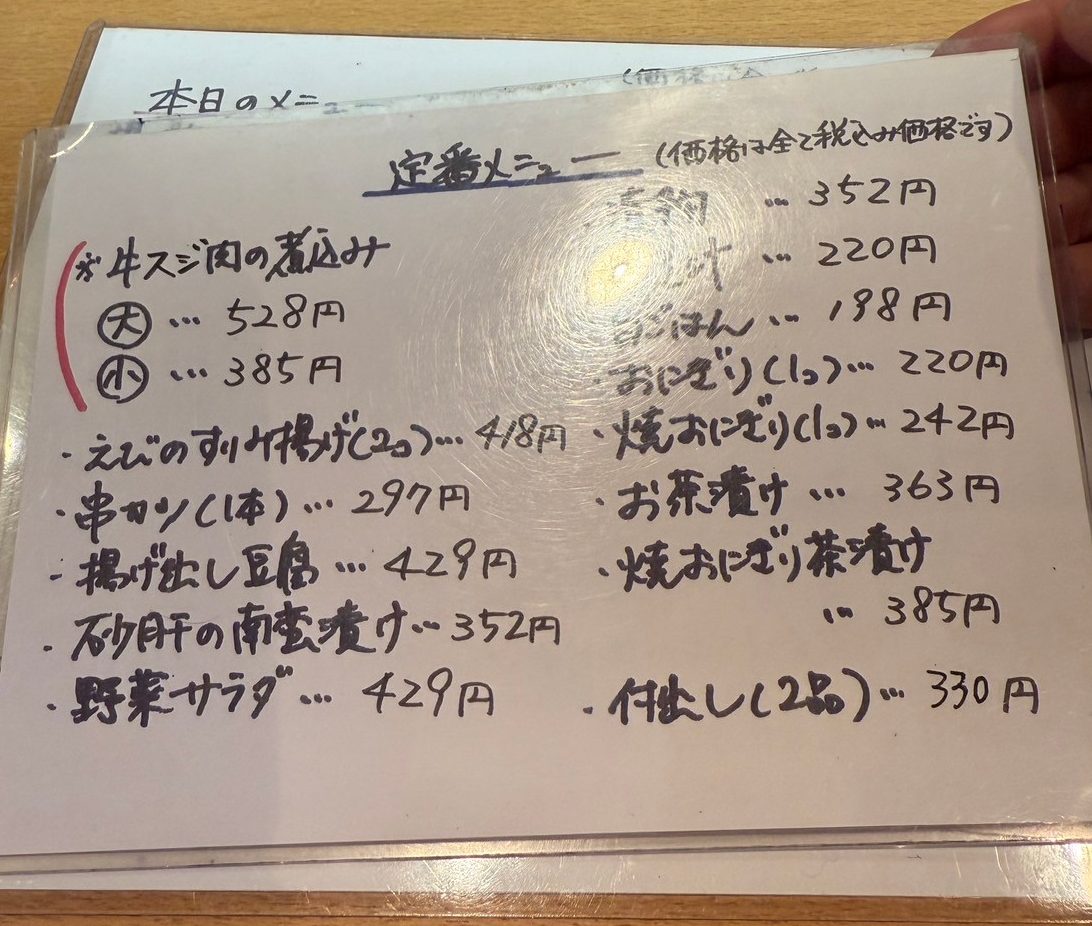 本日のメニュー
定番メニュー (価格は全て税込み価格です)
※牛スジ肉の煮込み
大 … 528円
小 … 385円
・えびのすりみ揚げ(2コ)… 418円
・串カツ(1本)… 297円
・揚げ出し豆腐 … 429円
・砂肝の南蛮漬け … 352円
・野菜サラダ … 429円
… 352円
… 220円
ごはん … 198円
・おにぎり(1コ)… 220円
・焼おにぎり(1コ)… 242円
・お茶漬け … 363円
・焼おにぎり茶漬け
… 385円
・付出し(2品)… 330円